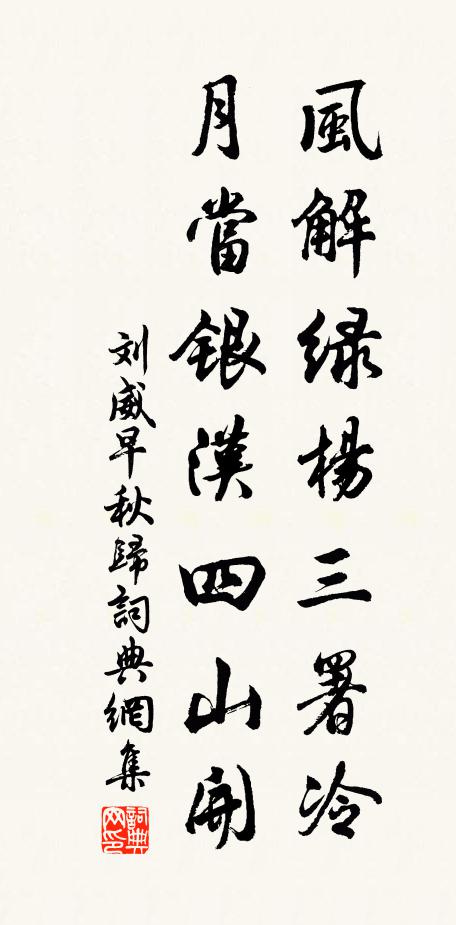 風解緑楊三署冷
月當銀漢四山開
刘威早秋歸詞典網集
詞典网印